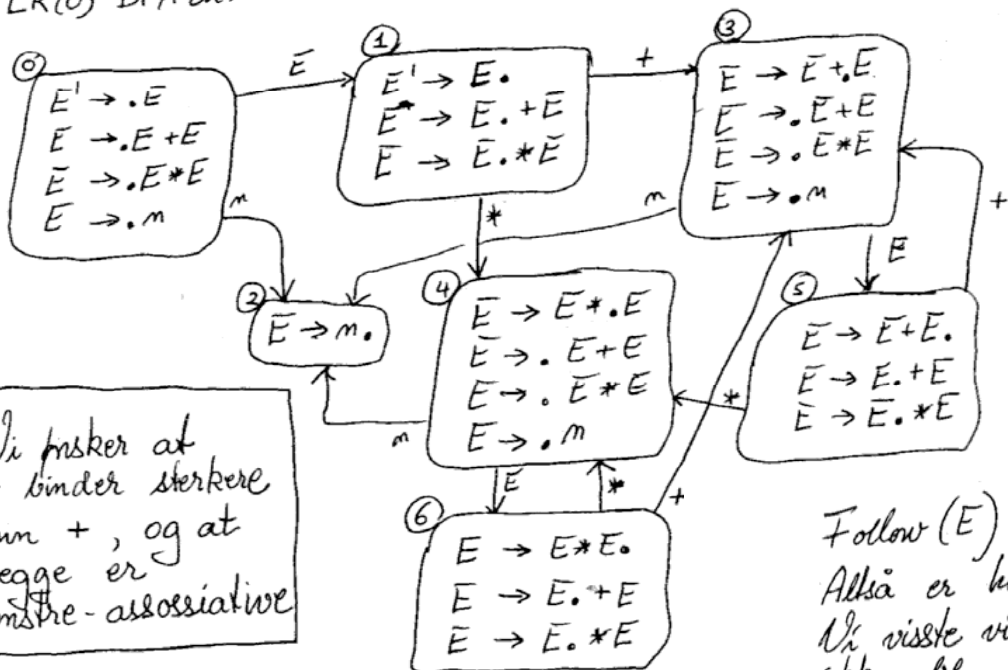 LR(0) DFA
0
E' → .E
E → .E+E
E → .E*E
E → .n
E
n
1
E' → E.
E → E.+E
E → E.*E
+
*
3
E → E+.E
E → .E+E
E → .E*E
E → .n
n
E
+
2
E → n.
4
E → E*.E
E → .E+E
E → .E*E
E → .n
n
E
*
+
*
5
E → E+E.
E → E.+E
E → E.*E
6
E → E*E.
E → E.+E
E → E.*E
Vi ønsker at
binder sterkere
enn +, og at
begge er
venstre-assossiative
Follow (E)
Altså er
Vi visste